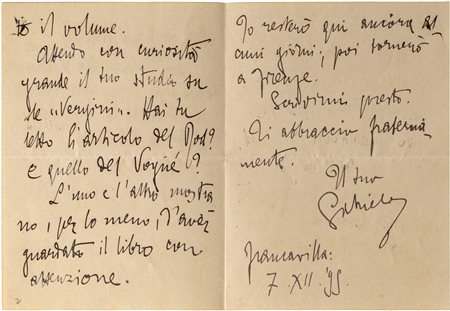 il volume.
Attendo con curiosità
grande il tuo studio su
le "Vergini". Hai tu
letto l'articolo del Rod?
e quello del Vogüé?
L'uno e l'altro mostra
no, per lo meno, d'aver
guardato il libro con
attenzione.
Io resterò qui ancora al
cuni giorni; poi tornerò
a Firenze.
Scrivimi presto.
Ti abbraccio fraterna
mente.
Il tuo
Gabriele
Francavilla:
7. XII. '95.